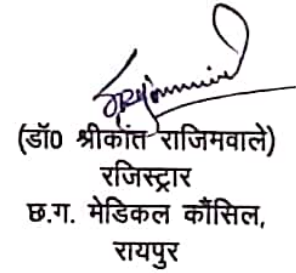 (डॉ0 श्रीकांत राजिमवाले)
रजिस्ट्रार
छ.ग. मेडिकल कौंसिल,
रायपुर